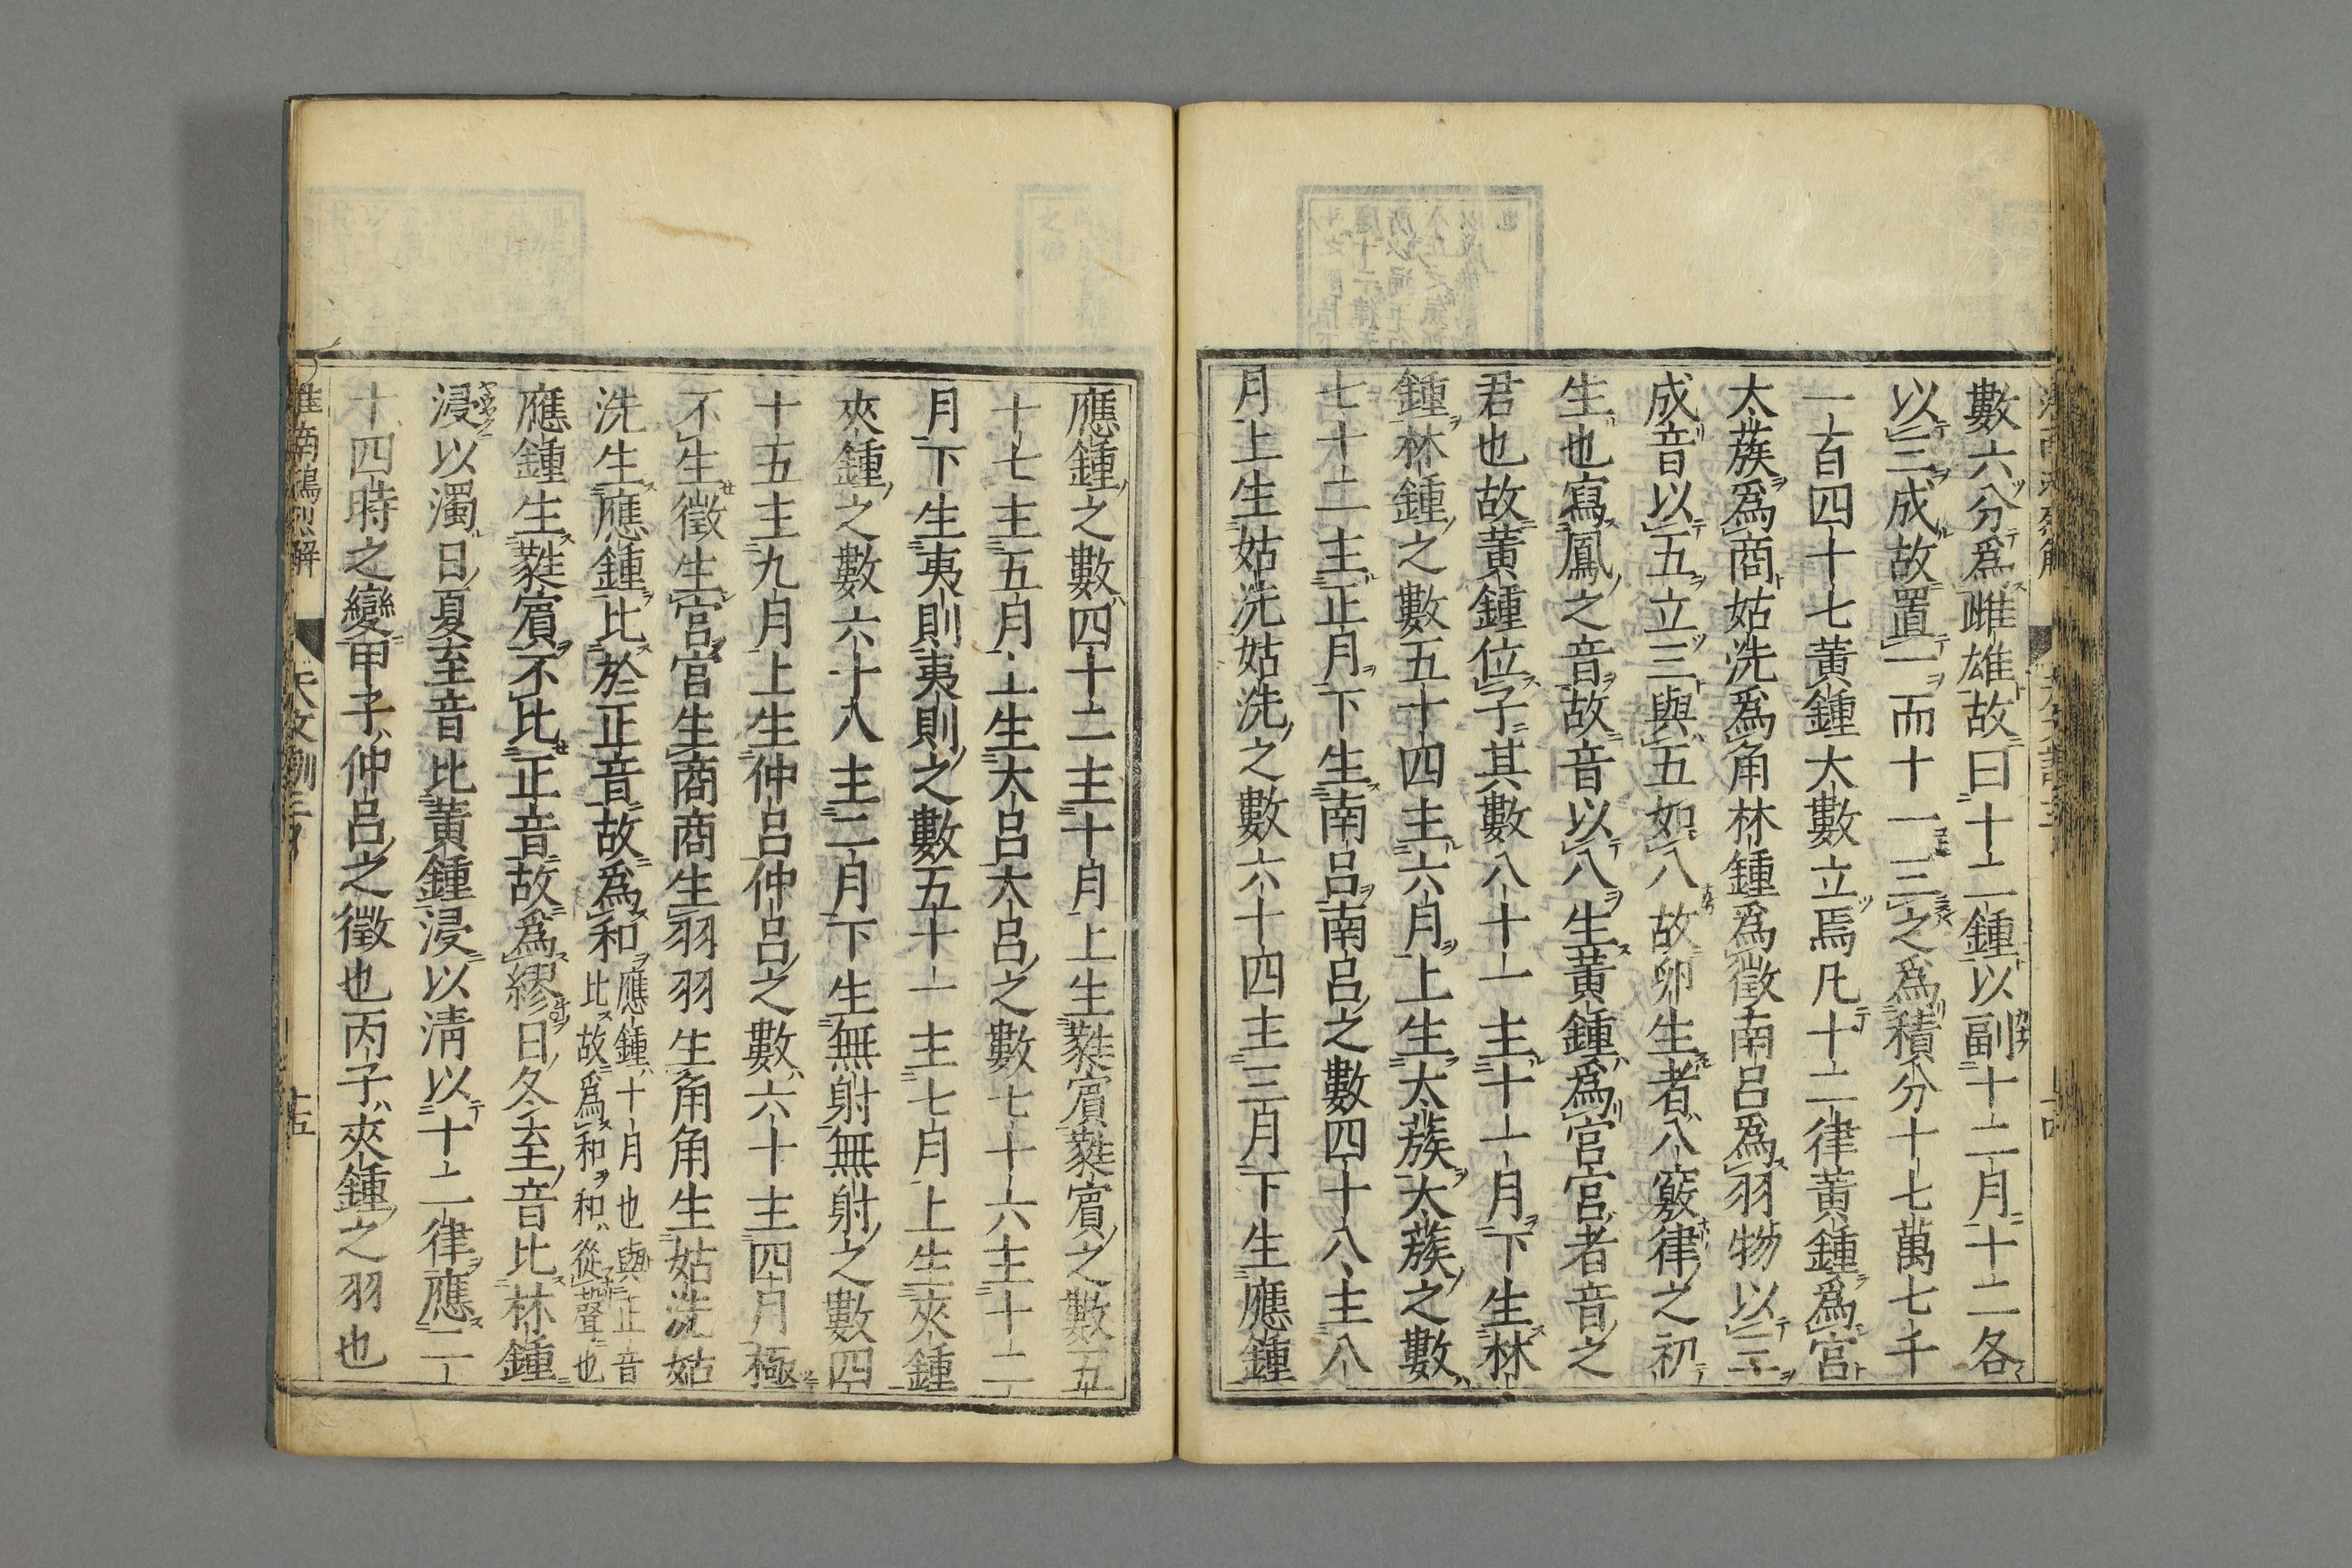 數六分爲雌雄故曰十二鍾以副十二月十二各
以三成故置一而十一三之爲積分十七萬七千
一百四十七黄鍾大數立焉凡十二律黄鍾爲宮
太蔟爲商姑洗爲角林鍾爲徵南呂爲羽物以三
成音以五立三與五如八故卵生者八竅律之初
生也寫鳳之音故音以八生黄鍾爲宮宮者音之
君也故黄鍾位子其數八十一主十一月下生林
鍾林鍾之數五十四主六月上生太蔟太蔟之數
七十二主正月下生南呂南呂之數四十八主八
月上生姑洗姑洗之數六十四主三月下生應鍾
應鍾之數四十二主十月上生蕤賔蕤賔之數五
十七主五月上生大呂大呂之數七十六主十二
月下生夷則夷則之數五十一主七月上生夾鍾
夾鍾之數六十八主二月下生無射無射之數四
十五主九月上生仲呂仲呂之數六十主四月極
不生徵生宮宮生商商生羽羽生角角生姑洗姑
洗生應鍾比於正音故爲和應鍾十月也與正音比故爲和和從聲也
應鍾生蕤賔不比正音故爲繆日冬至音比林鍾
浸以濁日夏至音比黄鍾浸以淸以十二律應二
十四時之變甲子仲呂之徵也丙子夾鍾之羽也
淮南鴻烈解 天文訓三 十五